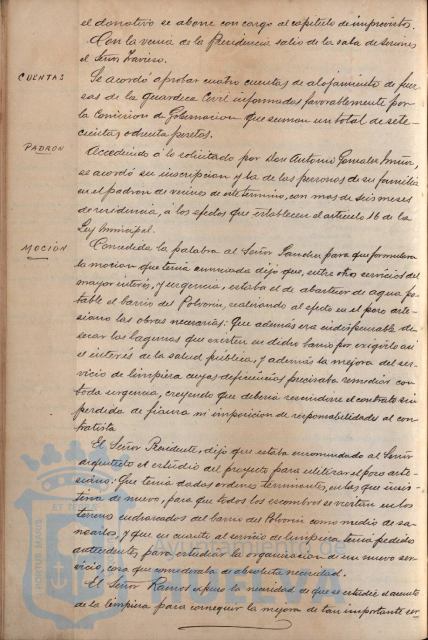 el donativo se abone con cargo al capítulo de imprevistos.
Con la venia de la Presidencia salio de la sala de sesiones
el Señor Traviero.
CUENTAS
Se acordó aprobar cuatro cuentas de alojamiento de fuer-
zas de la Guardia Civil informadas favorablemente por
la Comision de Gobernacion que suman un total de sete-
cientas ochenta pesetas.
PADRON
Accediendo á lo solicitado por Don Antonio Gonzalez
se acordó su inscripcion y la de las personas de su familia
en el padron de vecinos de este termino, con mas de seis meses
de residencia, á los efectos que establece el articulo 16 de la
Ley Municipal.
MOCIÓN
Concedida la palabra al Señor Sanchez para que formulara
la mocion que tenia anunciada dijo que, entre otros servicios del
mayor interés, y urgencia, estaba el de abastecer de agua po-
table el barrio del Polvorin, realizando al efecto en el pozo arte-
siano las obras necesarias: Que además era indispensable de-
secar las lagunas que existen en dicho barrio por exigirlo asi
el interés de la salud pública, y además la mejora del ser-
vicio de limpieza cuyas deficiencias precisaba remediar con
toda urgencia, creyendo que deberia rescindirse el contrato sin
perdida de fianza ni imposicion de responsabilidades al con-
tratista
El Señor Presidente, dijo que estaba encomendado al Señor
Arquitecto el estudio del proyecto para utilizar el pozo arte-
siano: Que tenia dadas ordenes terminantes, en las que insis-
tiria de nuevo, para que todos los escombros se viertan en los
terrenos encharcados del barrio del Polvorin como medio de sa-
nearlos, y que en cuanto al servicio de limpieza tenia pedidos
antecedentes, para estudiar la organizacion de un nuevo ser-
vicio, cosa que consideraba de absoluta necesidad.
El Señor Ramos expuso la necesidad de que se estudie el asunto
de la limpieza para conseguir la mejora de tan importante ser
PORTUS MARIS
ET TERRÆ